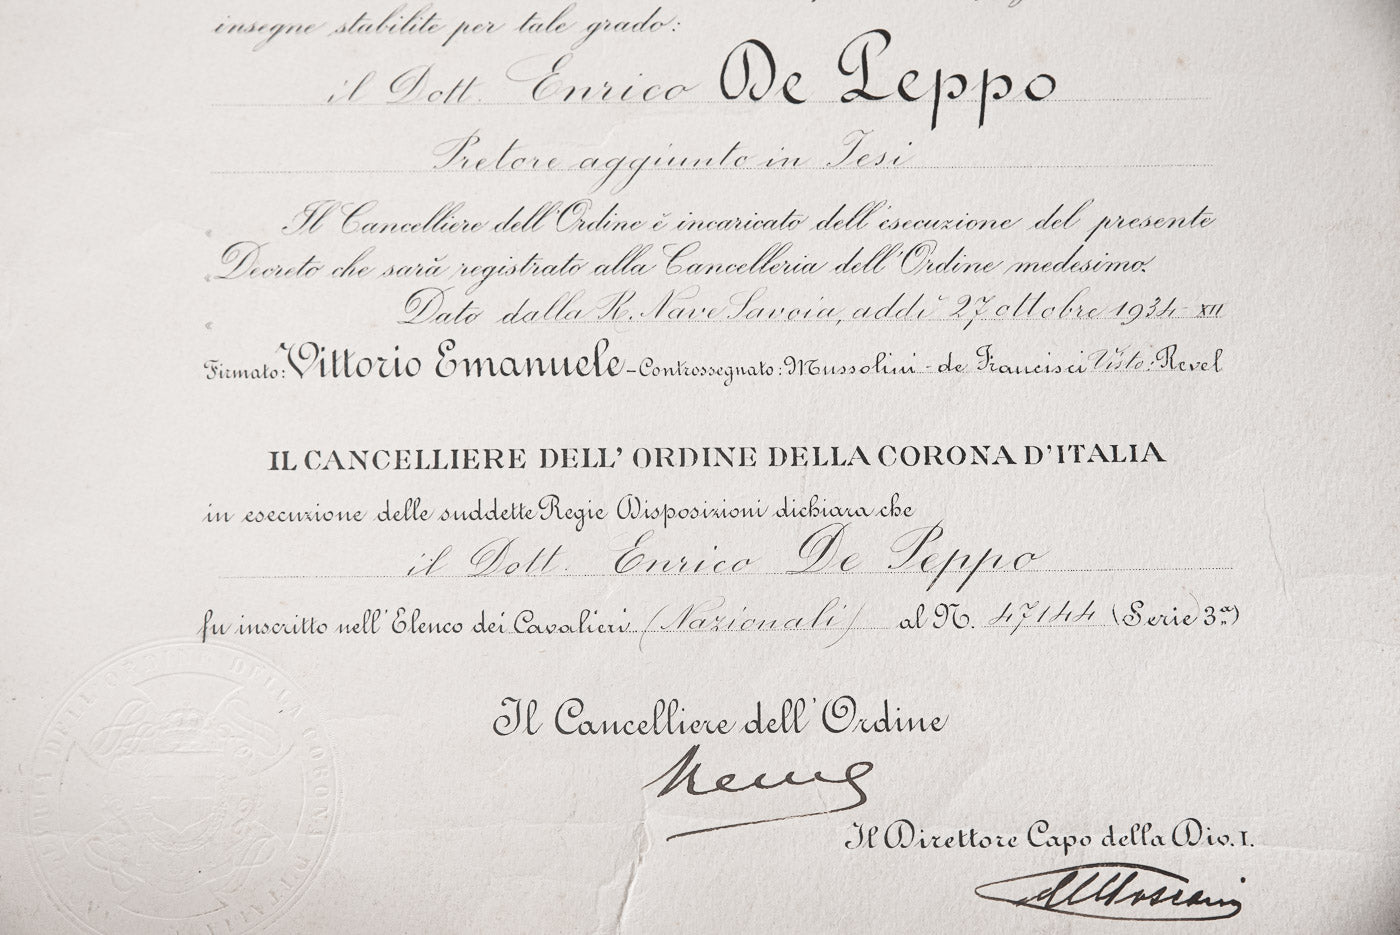 insegne stabilite per tale grado:
il Dott. Enrico De Peppo
Pretore aggiunto in Jesi
Il Cancelliere dell'Ordine è incaricato dell'esecuzione del presente
Decreto che sarà registrato alla Cancelleria dell'Ordine medesimo.
Dato dalla R. Nave Savoia, addì 27 ottobre 1934-XII
Firmato: Vittorio Emanuele - Controssegnato: Mussolini - de Francisci Visto: Revel
IL CANCELLIERE DELL' ORDINE DELLA CORONA D'ITALIA
in esecuzione delle suddette Regie Disposizioni dichiara che
il Dott. Enrico De Peppo
fu inscritto nell'Elenco dei Cavalieri (Nazionali) al N. 47144 (Serie 3ª)
Il Cancelliere dell'Ordine
Il Direttore Capo della Div. I.
DELL'ORDINE DELLA CORONA D'ITALIA